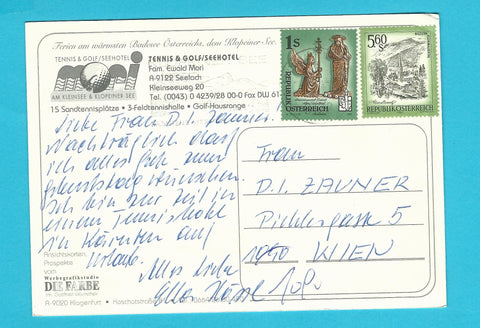 Ferien am wärmsten Badesee Österreichs, dem Klopeiner See.
TENNIS & GOLF/SEEHOTEL
mori
AM KLEINSEE & KLOPEINER SEE
TENNIS & GOLF/SEEHOTEL
Fam. Ewald Mori
A-9122 Seelach
Kleinseeweg 20
Tel. (0043) 0 4239/28 00-0 Fax DW 61
15 Sandtennisplätze · 3-Feldtennishalle · Golf-Hausrange
1s
REPUBLIK
ÖSTERREICH
5.60
S
REPUBLIK ÖSTERREICH
Liebe Frau D.I. Zauner!
Nachträglich darf
ich alles Gute zum
Geburtstag wünschen.
Ich bin zur Zeit in
einem Tennishotel
in Kärnten auf
Urlaub.
Alles Liebe
Frau
D.I. ZAUNER
Pichlergasse 5
1090 WIEN
Ansichtskarten,
Prospekte
vom
Werbegrafikstudio
DIE FARBE
A-9020 Klagenfurt